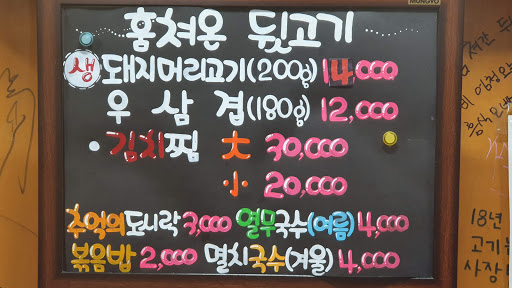 MUNGYO
훔쳐온 뒷고기
생 돼지머리고기(200g) 14,000
우 삼 겹 (180g) 12,000
• 김치찜 大 30,000
小 20,000
추억의도시락 3,000 열무국수(여름) 4,000
볶음밥 2,000 멸치국수(겨울) 4,000
18년
고기
사장